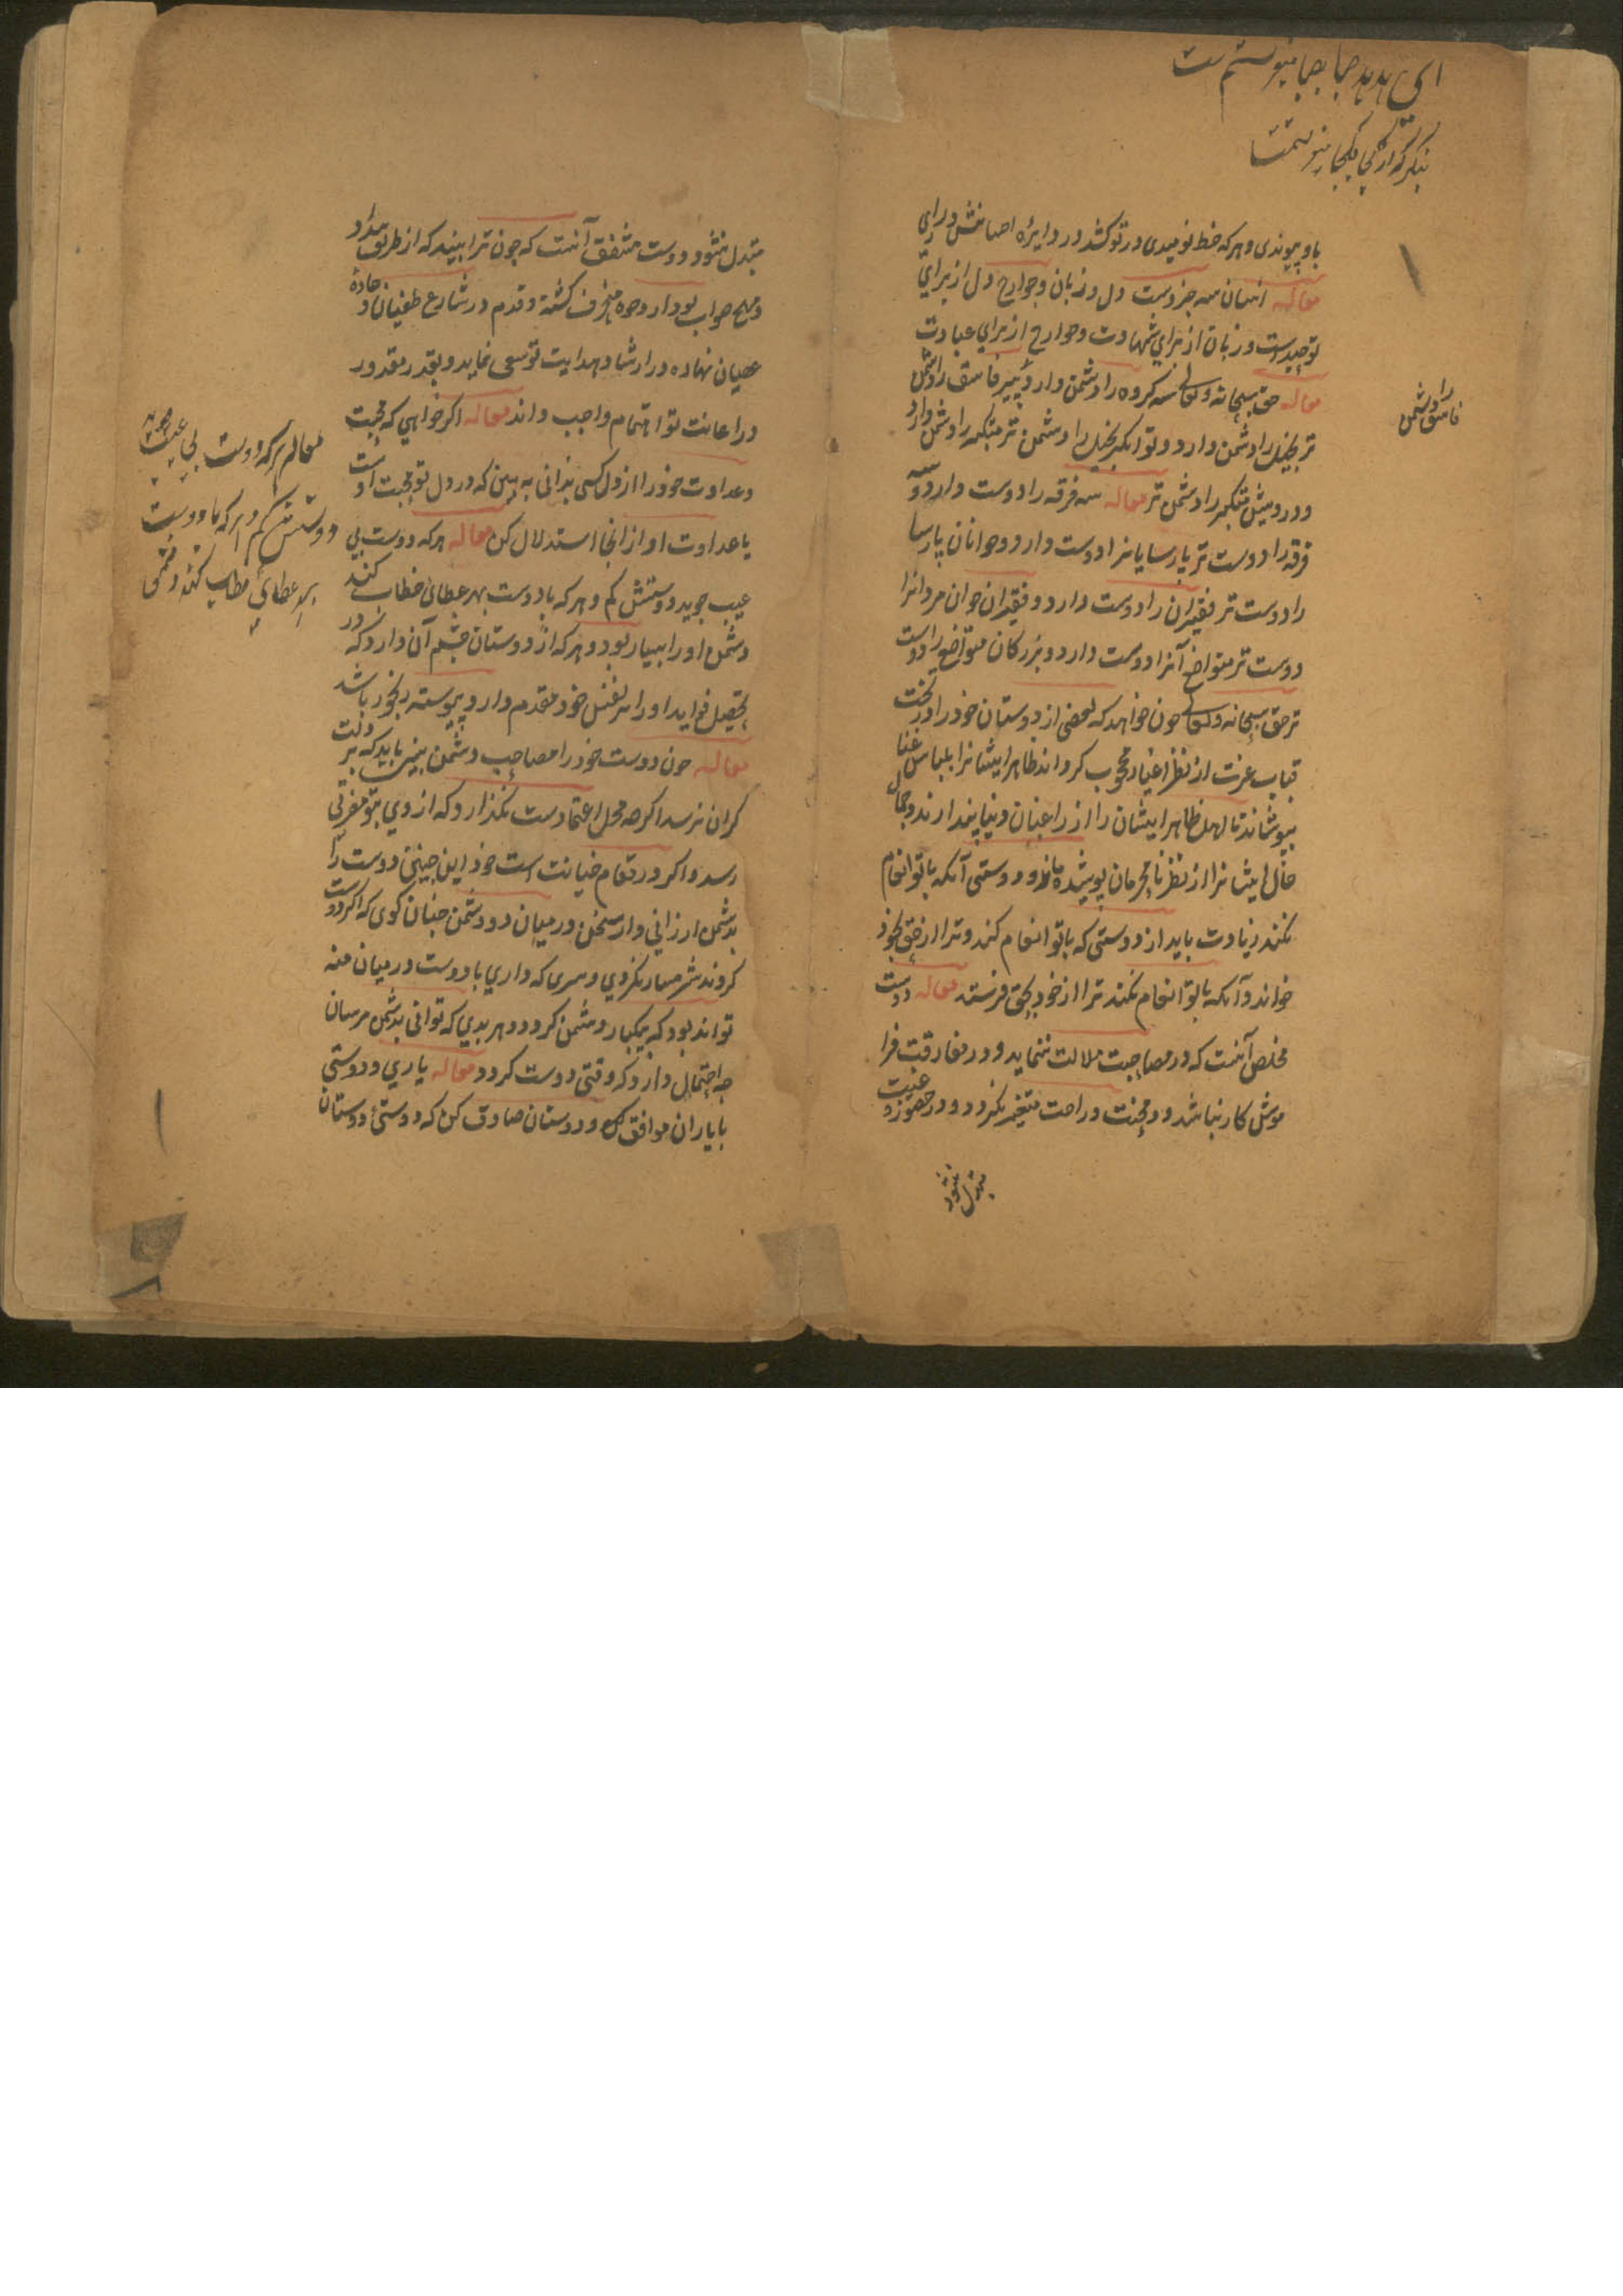 ای هدهد صبا بصبا میفرستمت
بنگر که از کجا بکجا میفرستمت
با او پیوندی و هر که خط نومیدی در تو کشد در دایره اصافش در رای
مقاله انسان سه جزوست دل و زبان و جوارح دل از برای
توحیدست و زبان از برای شهادت و جوارح از برای عبادت
مقاله حق سبحانه و تعالی سه کروه را دشمن دارد و پیر فاسق را دشمن
تر بخیل را دشمن دارد و توانکر بخیل را دشمن تر متکبر را دشمن دارد
و درویش متکبر را دشمن تر مقاله سه فرقه را دوست دارد و سه
فرقه را دوست تر پارسایانرا دوست دارد و جوانان پارسا
را دوست تر فقیران را دوست دارد و فقیران جوان مردانرا
دوست تر متواضعانرا دوست دارد و بزرکان متواضع را دوست
تر حق سبحانه و تعالی چون خواهد که بعضی از دوستان خود را در تحت
قباب عزت از نظر اغیار محجوب کرداند ظاهر ایشانرا بلباس غنا
بپوشاند تا اهل ظاهر ایشان را از راغبان دنیا پندارند و جمال
حال ایشانرا از نظر نامحرمان پوشیده ماند و دوستی آنکه با تو انعام
نکند زیادت باید از دوستی که با تو انعام کند و ترا از حق بخود
خواند و آنکه با تو انعام نکند ترا از خود بحق فرستد مقاله دوست
مخلص آنست که در مصاحبت ملالت ننماید و در مفارقت فرا
موش کار نباشد و در محنت و راحت متغیر نکردد و در حضور و غیبت
متبدل نشود
فاسق را دشمن
متبدل نشود و دوست مشفق آنست که چون ترا بیند که از طریق سداد
و نهج صواب بوادار وجوه منحرف کشته و قدم در شارع طغیان و جاده
عصیان نهاده در ارشاد و هدایت تو سعی نماید و بقدر مقدور
در اعانت تو اهتمام واجب داند مقاله اکر خواهی که محبت
و عداوت خود را از دل کسی بدانی به بین که در دل تو محبت اوست
یا عداوت او از انجا استدلال کن مقاله هر که دوست بی
عیب جوید دوستش کم و هر که با دوست بهر عطائی خطاب کند
دشمن او را بسیار بود و هر که از دوستان چشم آن دارد که در
تحصیل فواید او را بر نفس خود مقدم دارد پیوسته رنجور باشد
مقاله چون دوست خود را مصاحب دشمن بینی باید که بر دلت
کران نرسد اکر چه محل اعتمادست نکذارد که از وی بتو مضرتی
رسد و اکر در مقام خیانت است خود این چنین دوست را
بدشمن ارزانی دار سخن در میان دو دشمن چنان کوی که اکر دوست
کردند شرمسار نکردی و سری که داری با دوست در میان منه
تواند بود که یکبار دشمن کردد و هر بدی که توانی بدشمن مرسان
چه احتمال دارد که وقتی دوست کردد مقاله یاری و دوستی
با یاران موافق کن و دوستان صادق کن که دوستی دوستان
مقاله هر که دوست بی عیب جوید
دوستش کم و هر که با دوست
بهر عطائی خطاب کند دشمن